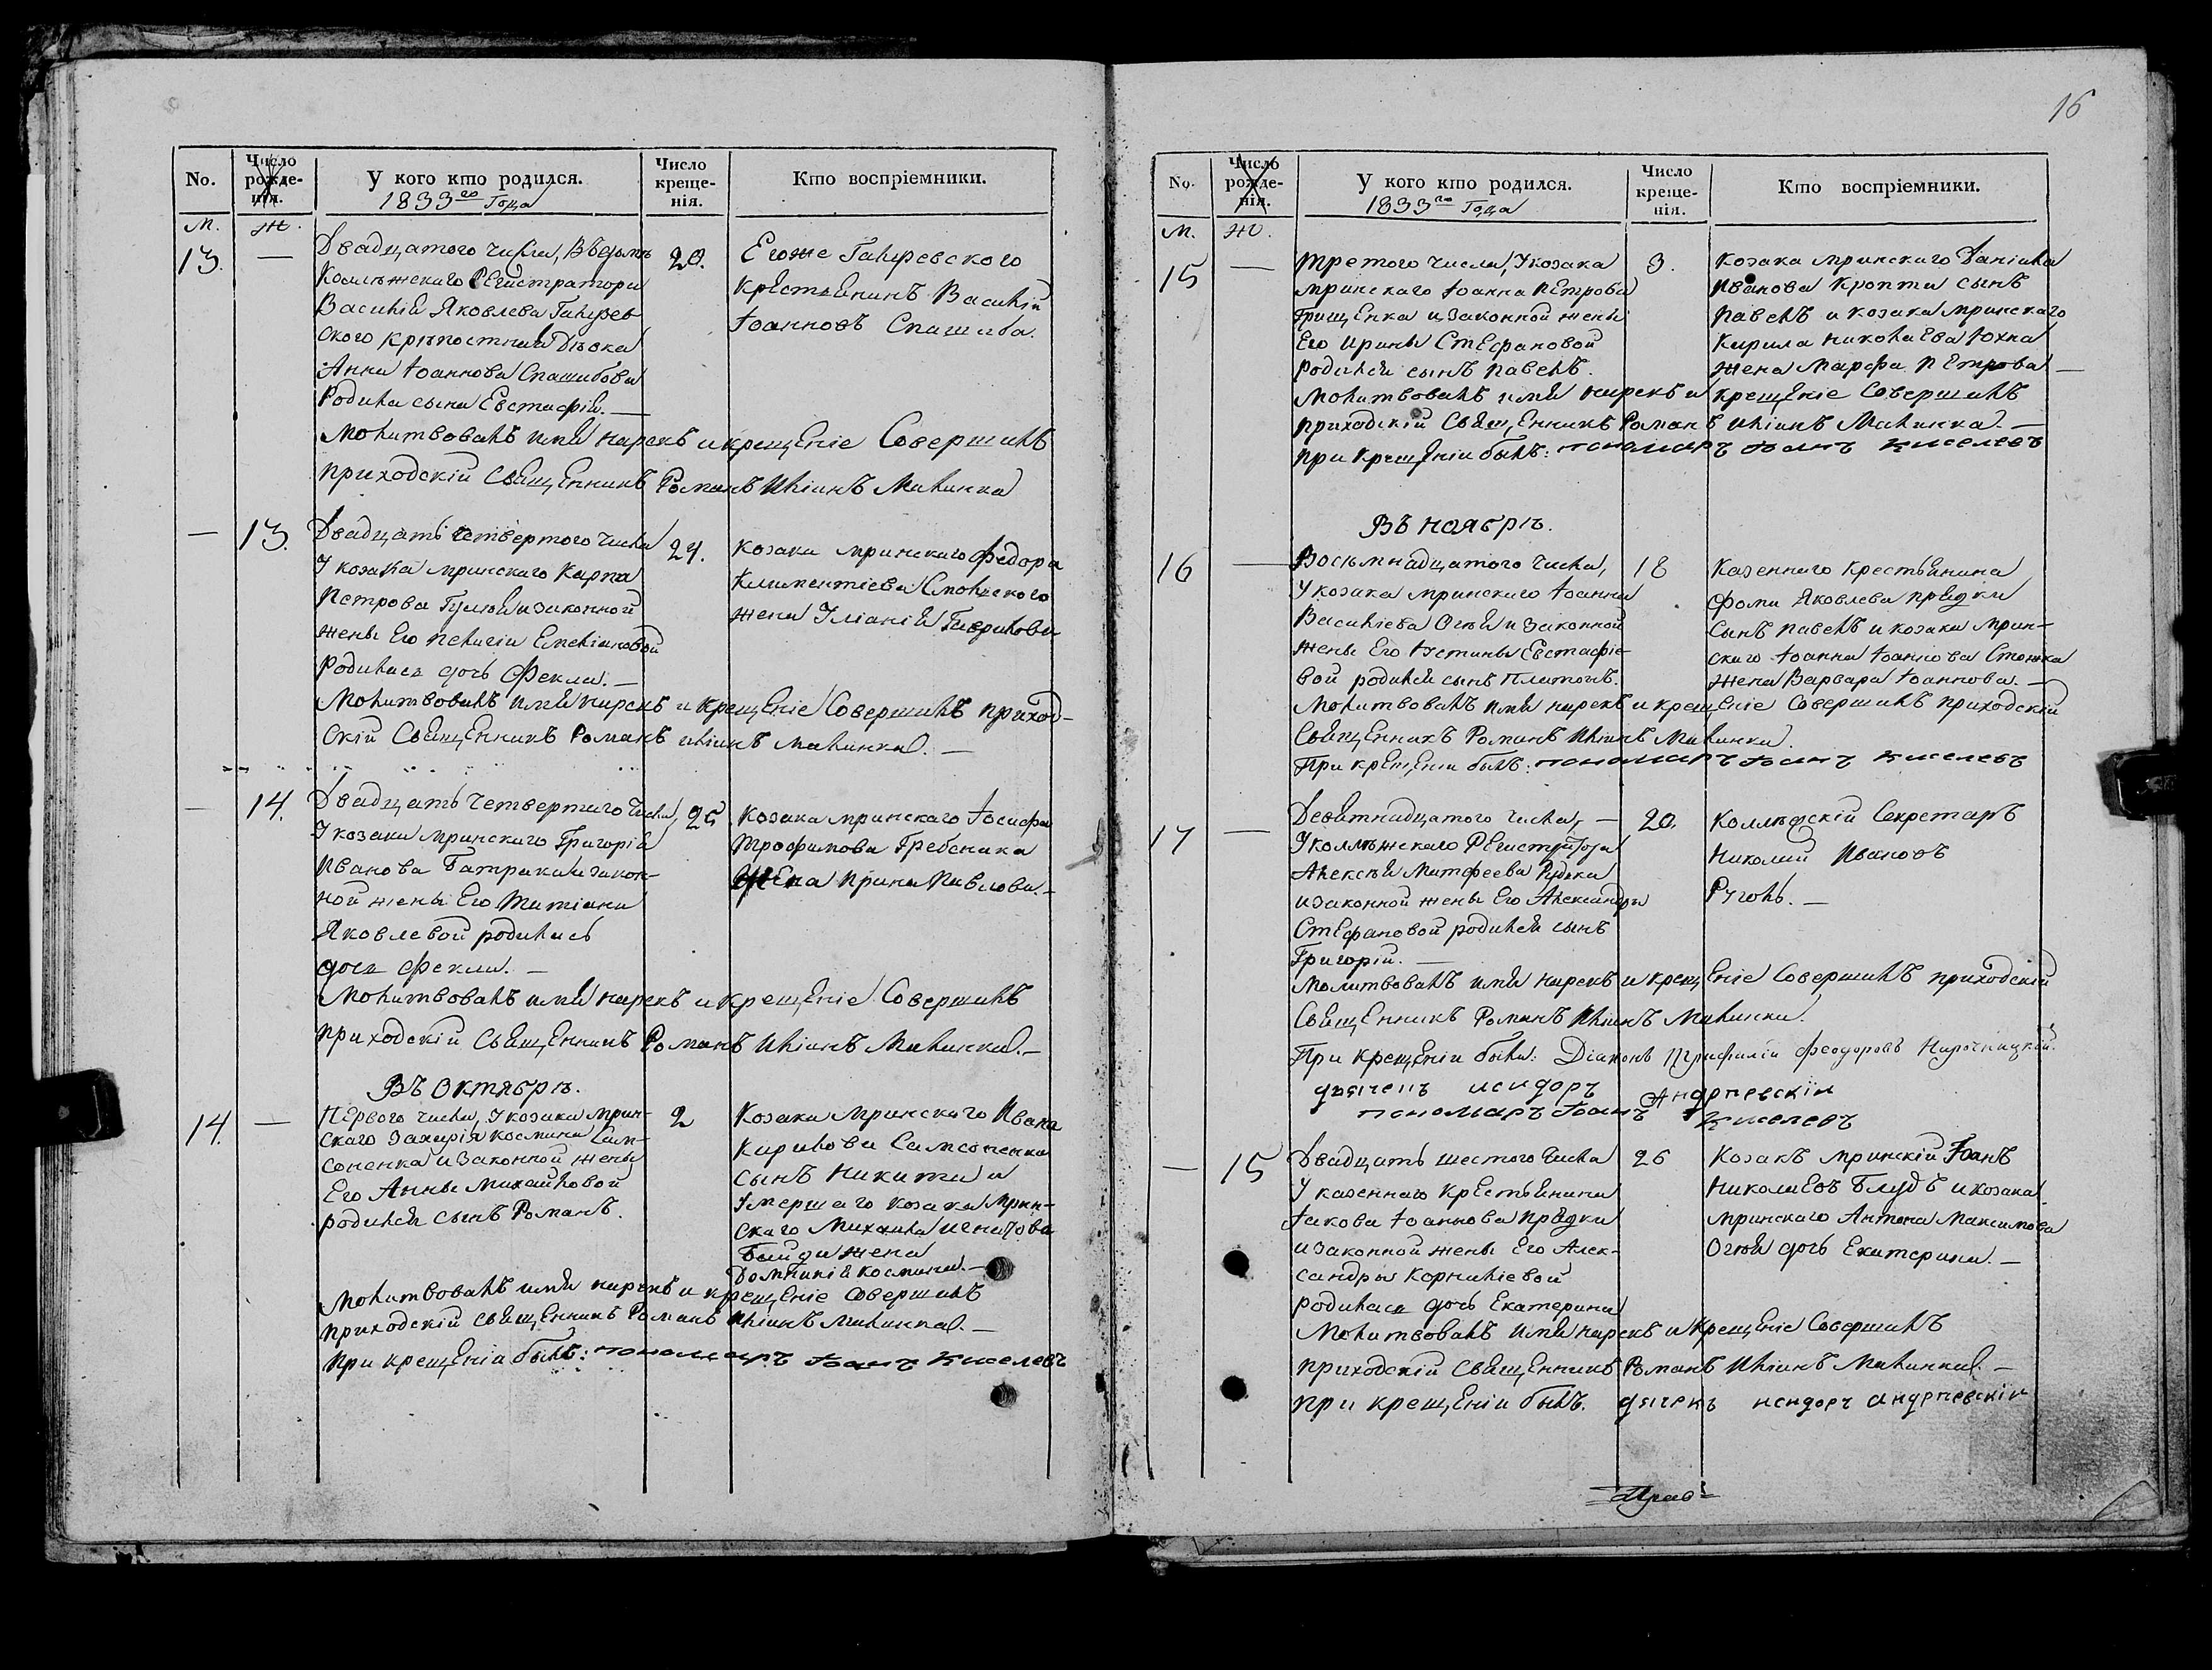 16
No.
Число рожденія.
У кого кто родился.
1833го Года
Число крещенія.
Кто воспріемники.
М.
Ж.
13.
—
Двадцатого числа, Вѣдомъ
Коллѣжскаго Регистратора
Василія Яковлева
ского крѣпостная Дѣвка
Анна Іоаннова Спашибова
Родила сына Евстафій. —
20.
Егоже
Крестьянинъ Василій
Іоанновъ Спашиба.
Молитвовалъ имя нарекъ и крещеніе Совершилъ
приходскій Священникъ Романъ Иліинъ Малинка
—
13.
Двадцать четвертого числа
У козака мринского Карпа
Петрова и законной
жены Его Пелагіи Емеліановой
Родилась дочь Фекла. —
24.
козака мринского Федора
Климентіева Смольского
жена Уліанія Гаврилова
Молитвовалъ имя нарекъ и крещеніе Совершилъ приход-
скій Священникъ Романъ Иліинъ Малинка. —
—
14.
Двадцать четвертаго числа,
У козака мринского Григорія
Иванова Батрака и закон-
ной жены Его Татіаны
Яковлевой родилась
дочь Фекла. —
25
козака мринскаго Іосифа
Трофимова Гребеника
жена Ирина Павлова. —
Молитвовалъ имя нарекъ и крещеніе Совершилъ
приходскій Священникъ Романъ Иліинъ Малинка. —
Въ Октябрѣ.
14.
—
Первого числа, У козака мрин-
скаго Захарія Космина Сам-
соненка и законной жены
Его Анны Михайловой
родился сынъ Романъ.
2
Козака мринскаго Ивана
Кирилова Самсоненка
сынъ Никита и
Умершаго козака Мрин-
скаго Михаила Игнатова
Байди жена
Домникія Космина. —
Молитвовалъ имя нарекъ и крещеніе Совершилъ
приходскій священникъ Романъ Иліинъ Малинка. —
При крещеніи былъ: пономаръ Іоанъ Киселевъ
No.
Число рожденія.
У кого кто родился.
1833го Года
Число крещенія.
Кто воспріемники.
М.
Ж.
15
—
Третого числа, У козака
мринскаго Іоанна Петрова
Грищенка и законной жены
Его Ирины Стефановой
родился сынъ Павелъ.
3.
Козака мринскаго Даніила
Иванова Кропти сынъ
Павелъ и козака мринскаго
Кирила Николаева Юхна
жена Марфа Петрова —
Молитвовалъ имя нарекъ и крещеніе Совершилъ
приходскій Священникъ Романъ Иліинъ Малинка. —
при крещеніи былъ: пономаръ Іоанъ Киселевъ
Въ Ноябрѣ.
16
—
Восьмнадцатого числа,
У козака мринскаго Іоанна
Василіева Огія и законной
жены Его Устины Евстафіе-
вой родился сынъ Платонъ.
18
Казеннаго крестьянина
Фомы Яковлева Прядки
Сынъ Павелъ и козака Мрин-
скаго Іоанна Іоаннова Стожка
жена Варвара Іоаннова. —
Молитвовалъ имя нарекъ и крещеніе Совершилъ приходскій
Священникъ Романъ Иліинъ Малинка.
При крещеніи былъ: пономаръ Іоанъ Киселевъ
17
—
Девятнадцатого числа, —
У коллѣжскаго Регистратора
Алексѣя Матфеева Рудка
и законной жены Его Александры
Стефановой родился сынъ
Григорій. —
20.
Коллѣжскій Секретаръ
Николай Ивановъ
Руголь. —
Молитвовалъ имя нарекъ и крещеніе Совершилъ приходскій
Священникъ Романъ Иліинъ Малинка.
При крещеніи были: Діаконъ Трифилій Феодоровъ
дьячекъ исидоръ Андрпевскій
пономаръ Іоанъ Киселевъ
—
15
Двадцать шестого числа
У казеннаго крестьянина
Іакова Іоаннова Прядки
и законной жены Его Алек-
сандры Корниліевой
родилася дочь Екатерина
26
Козакъ мринскій Іоанъ
Николаевъ Блудъ и козака
мринскаго Антона Максимова
Огія дочь Екатерина. —
Молитвовалъ имя нарекъ и крещеніе Совершилъ
приходскій Священникъ Романъ Иліинъ Малинка. —
при крещеніи былъ. дячекъ исидоръ андрпевскій